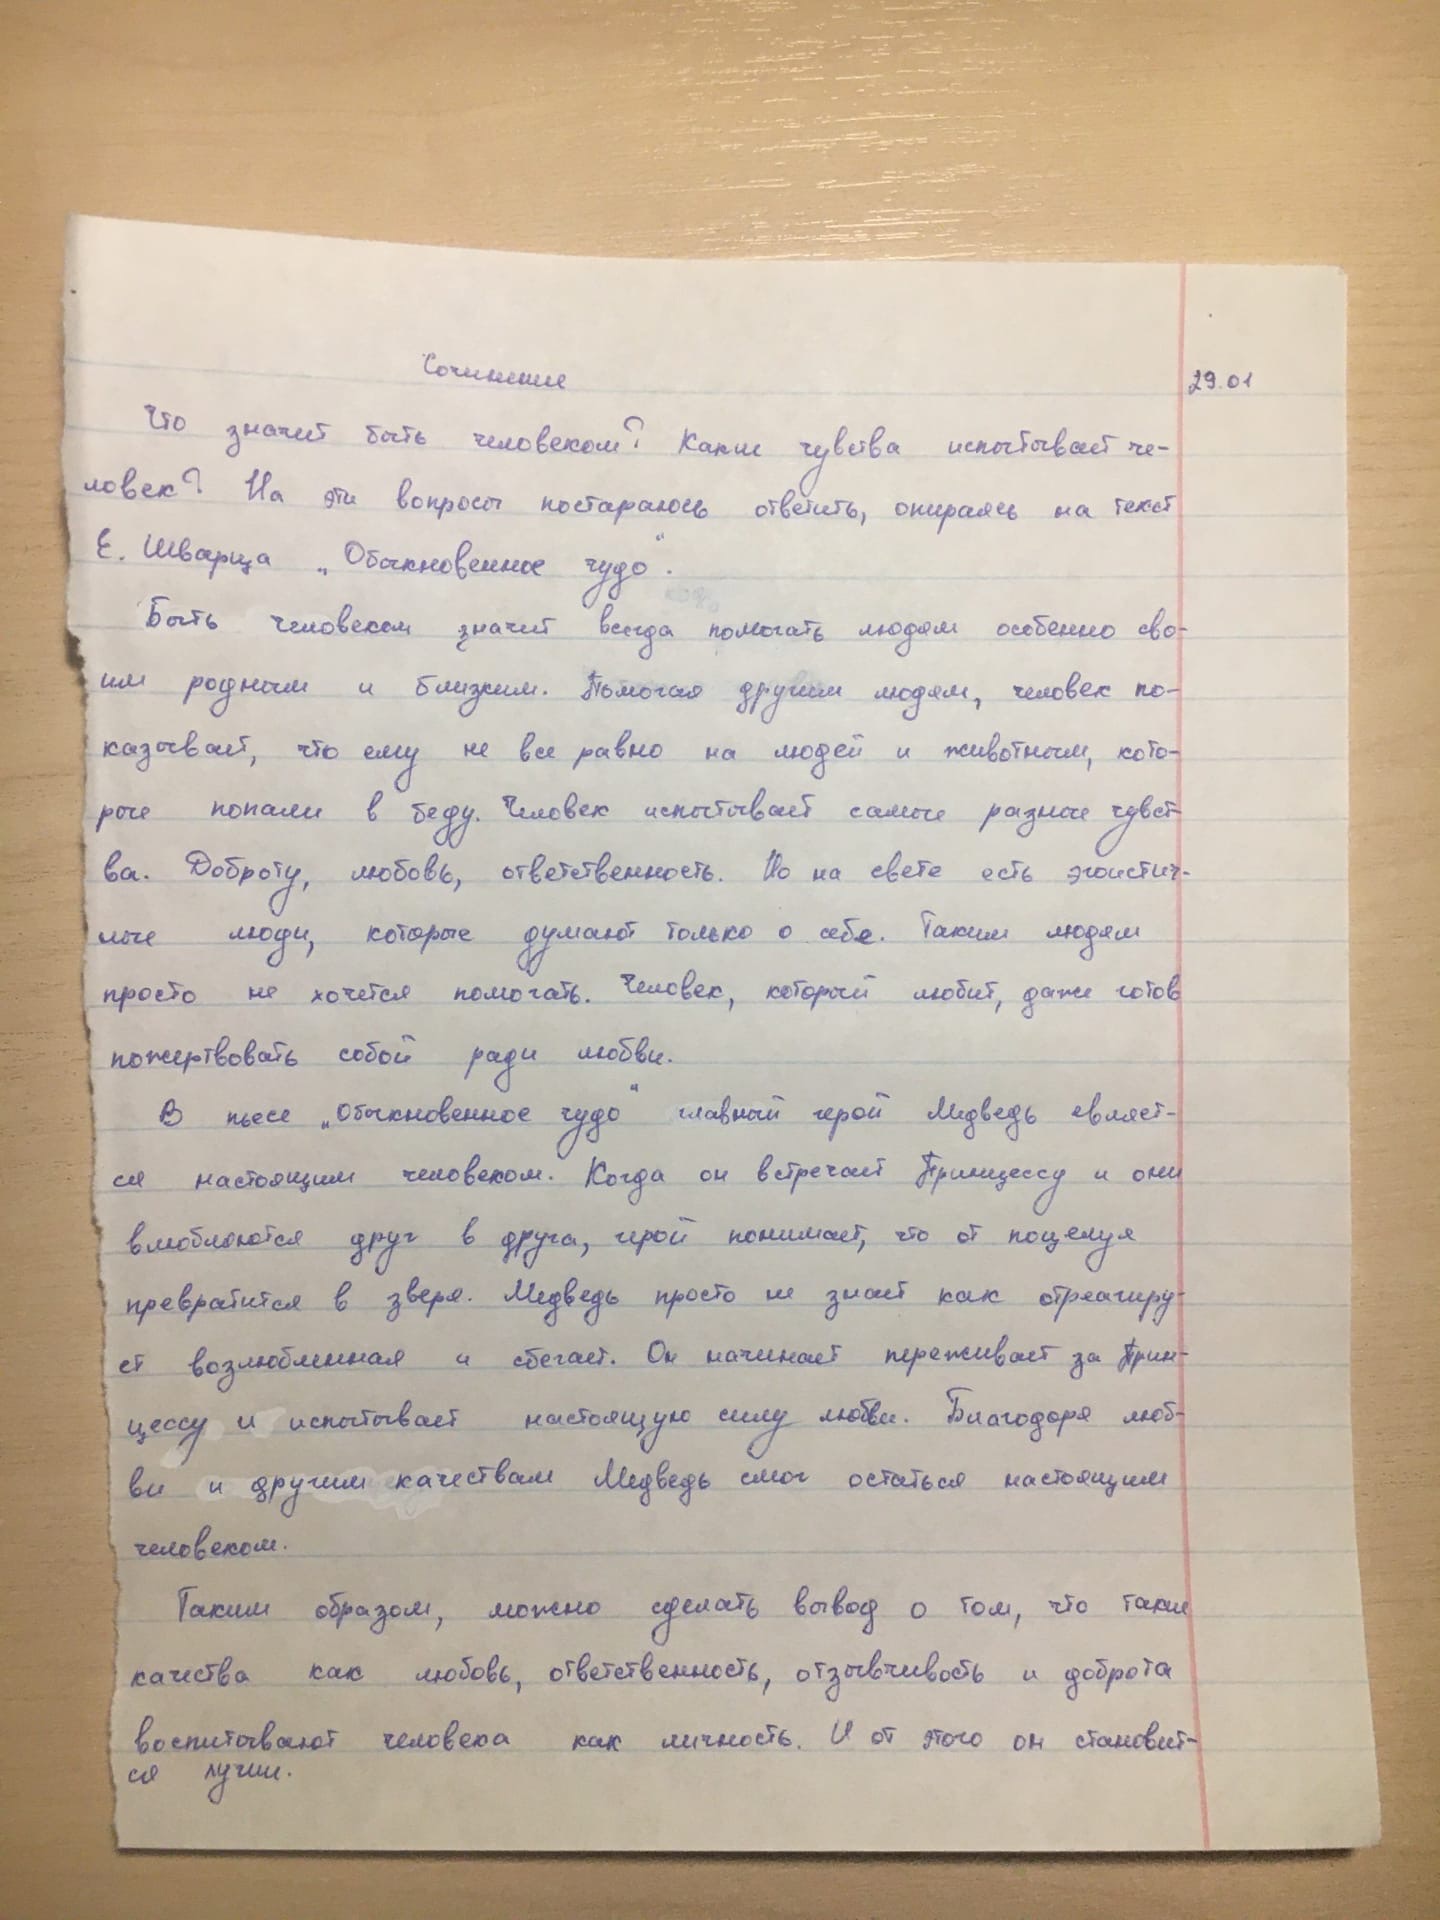 Сочинение
29.01
Что значит быть человеком? Какие чувства испытывает че-
ловек? На эти вопросы постараюсь ответить, опираясь на текст
Е. Шварца „Обыкновенное чудо“.
Быть человеком значит всегда помогать людям особенно сво-
им родным и близким. Помогая другим людям, человек по-
казывает, что ему не все равно на людей и животным, кото-
рые попали в беду. Человек испытывает самые разные чувст-
ва. Доброту, любовь, ответственность. Но на свете есть эгоистич-
ные люди, которые думают только о себе. Таким людям
просто не хочется помогать. Человек, который любит, даже готов
пожертвовать собой ради любви.
В пьесе „Обыкновенное чудо“ главный герой Медведь евляет-
ся настоящим человеком. Когда он встречает Принцессу и они
влюбляются друг в друга, герой понимает, что от поцелуя
превратится в зверя. Медведь просто не знает как отреагиру-
ет возлюбленная и сбегает. Он начинает переживает за Прин-
цессу и испытывает настоящую силу любви. Благодоря люб-
ви и другим качествам Медведь смог остаться настоящим
человеком.
Таким образом, можно сделать вывод о том, что такие
качества как любовь, ответственность, отзывчивость и доброта
воспитывают человека как личность. И от этого он становит-
ся лучше.